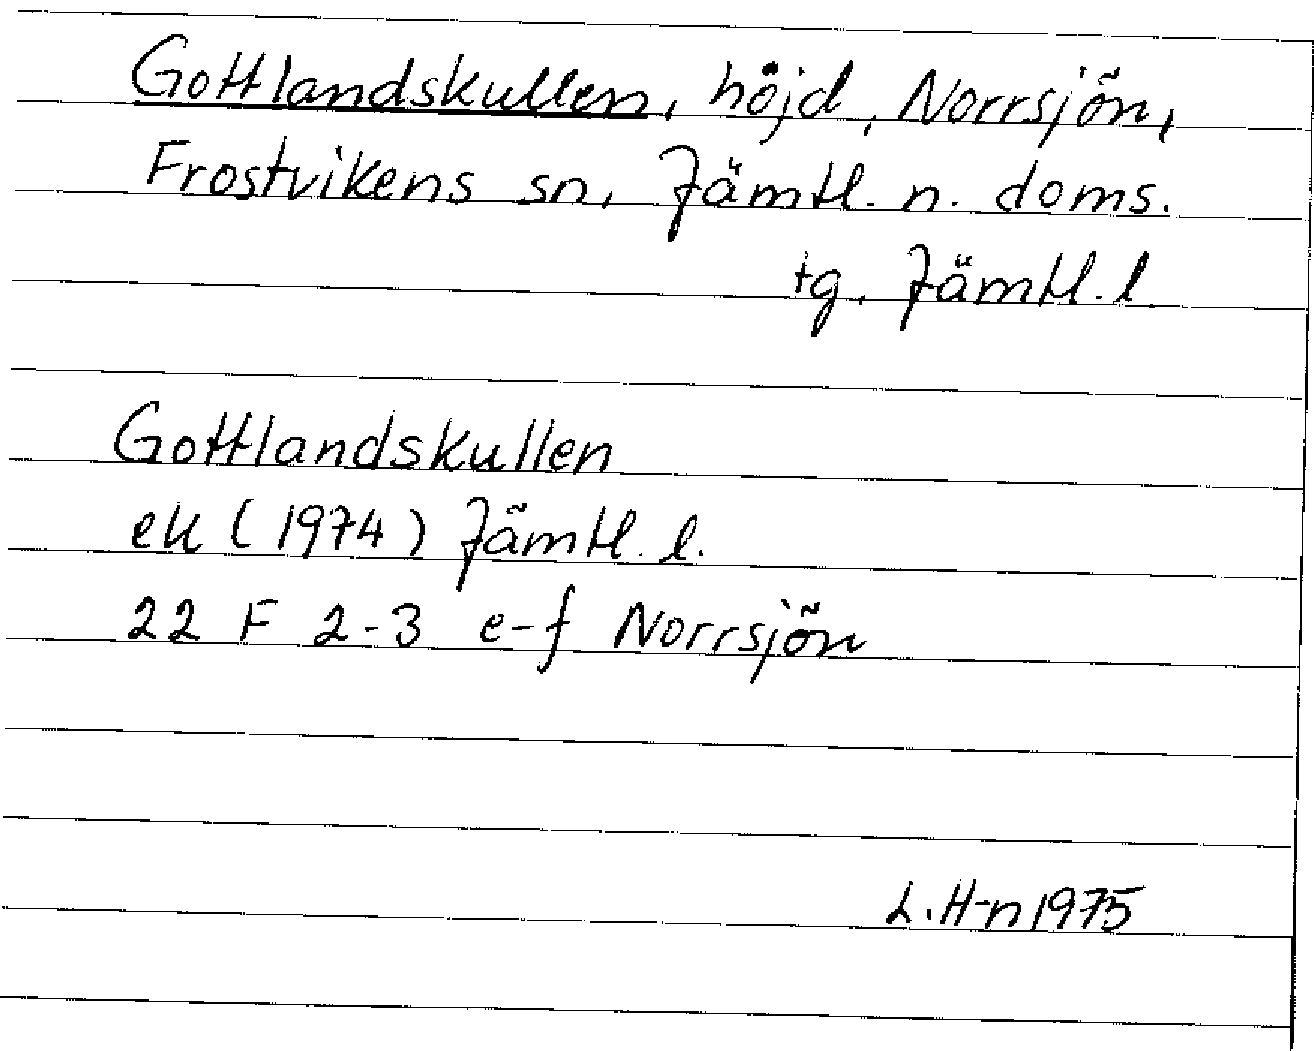 Gottlandskullen, höjd, Norrsjön,
Frostvikens sn, Jämtl. n. doms.
tg. Jämtl. l
Gottlandskullen
ek (1974) Jämtl. l.
22 F 2-3 e-f Norrsjön
L. H-n 1975